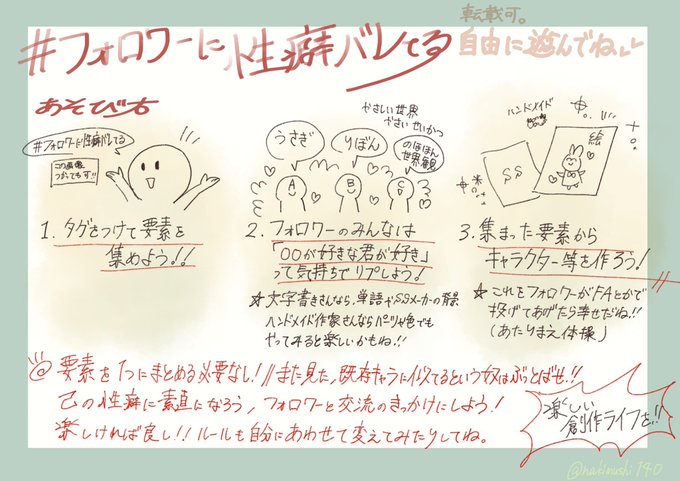 #フォロワーに性癖バレてる
転載可。
自由に遊んでね
あそび方
#フォロワーに性癖バレてる
この画像
つかってもす!!
1. タグをつけて要素を
集めよう!!
やさしい世界
やさい せいかつ
うさぎ
りぼん
のほほん
世界観
A
B
C
2. フォロワーのみんなは
「○○が好きな君が好き」
って気持ちでリプしよう!
☆文字書きさんなら、単語やSSメーカーの背景
ハンドメイド作家さんならパーツや色でも
やってみると楽しいかもね!!
ハンドメイド
SS
絵
3. 集まった要素から
キャラクター等を作ろう!
☆これをフォロワーがFAとかで
投げてあげたら幸せだね!!
(あたりまえ体操)
◎要素を1つにまとめる必要なし!//また見た,既存キャラに似てるという奴はぶっとばせ!!
己の性癖に素直になろう,フォロワーと交流のきっかけにしよう!
楽しければ良し!!ルールも自分にあわせて変えてみたりしてね。
楽しい
創作ライフを!!